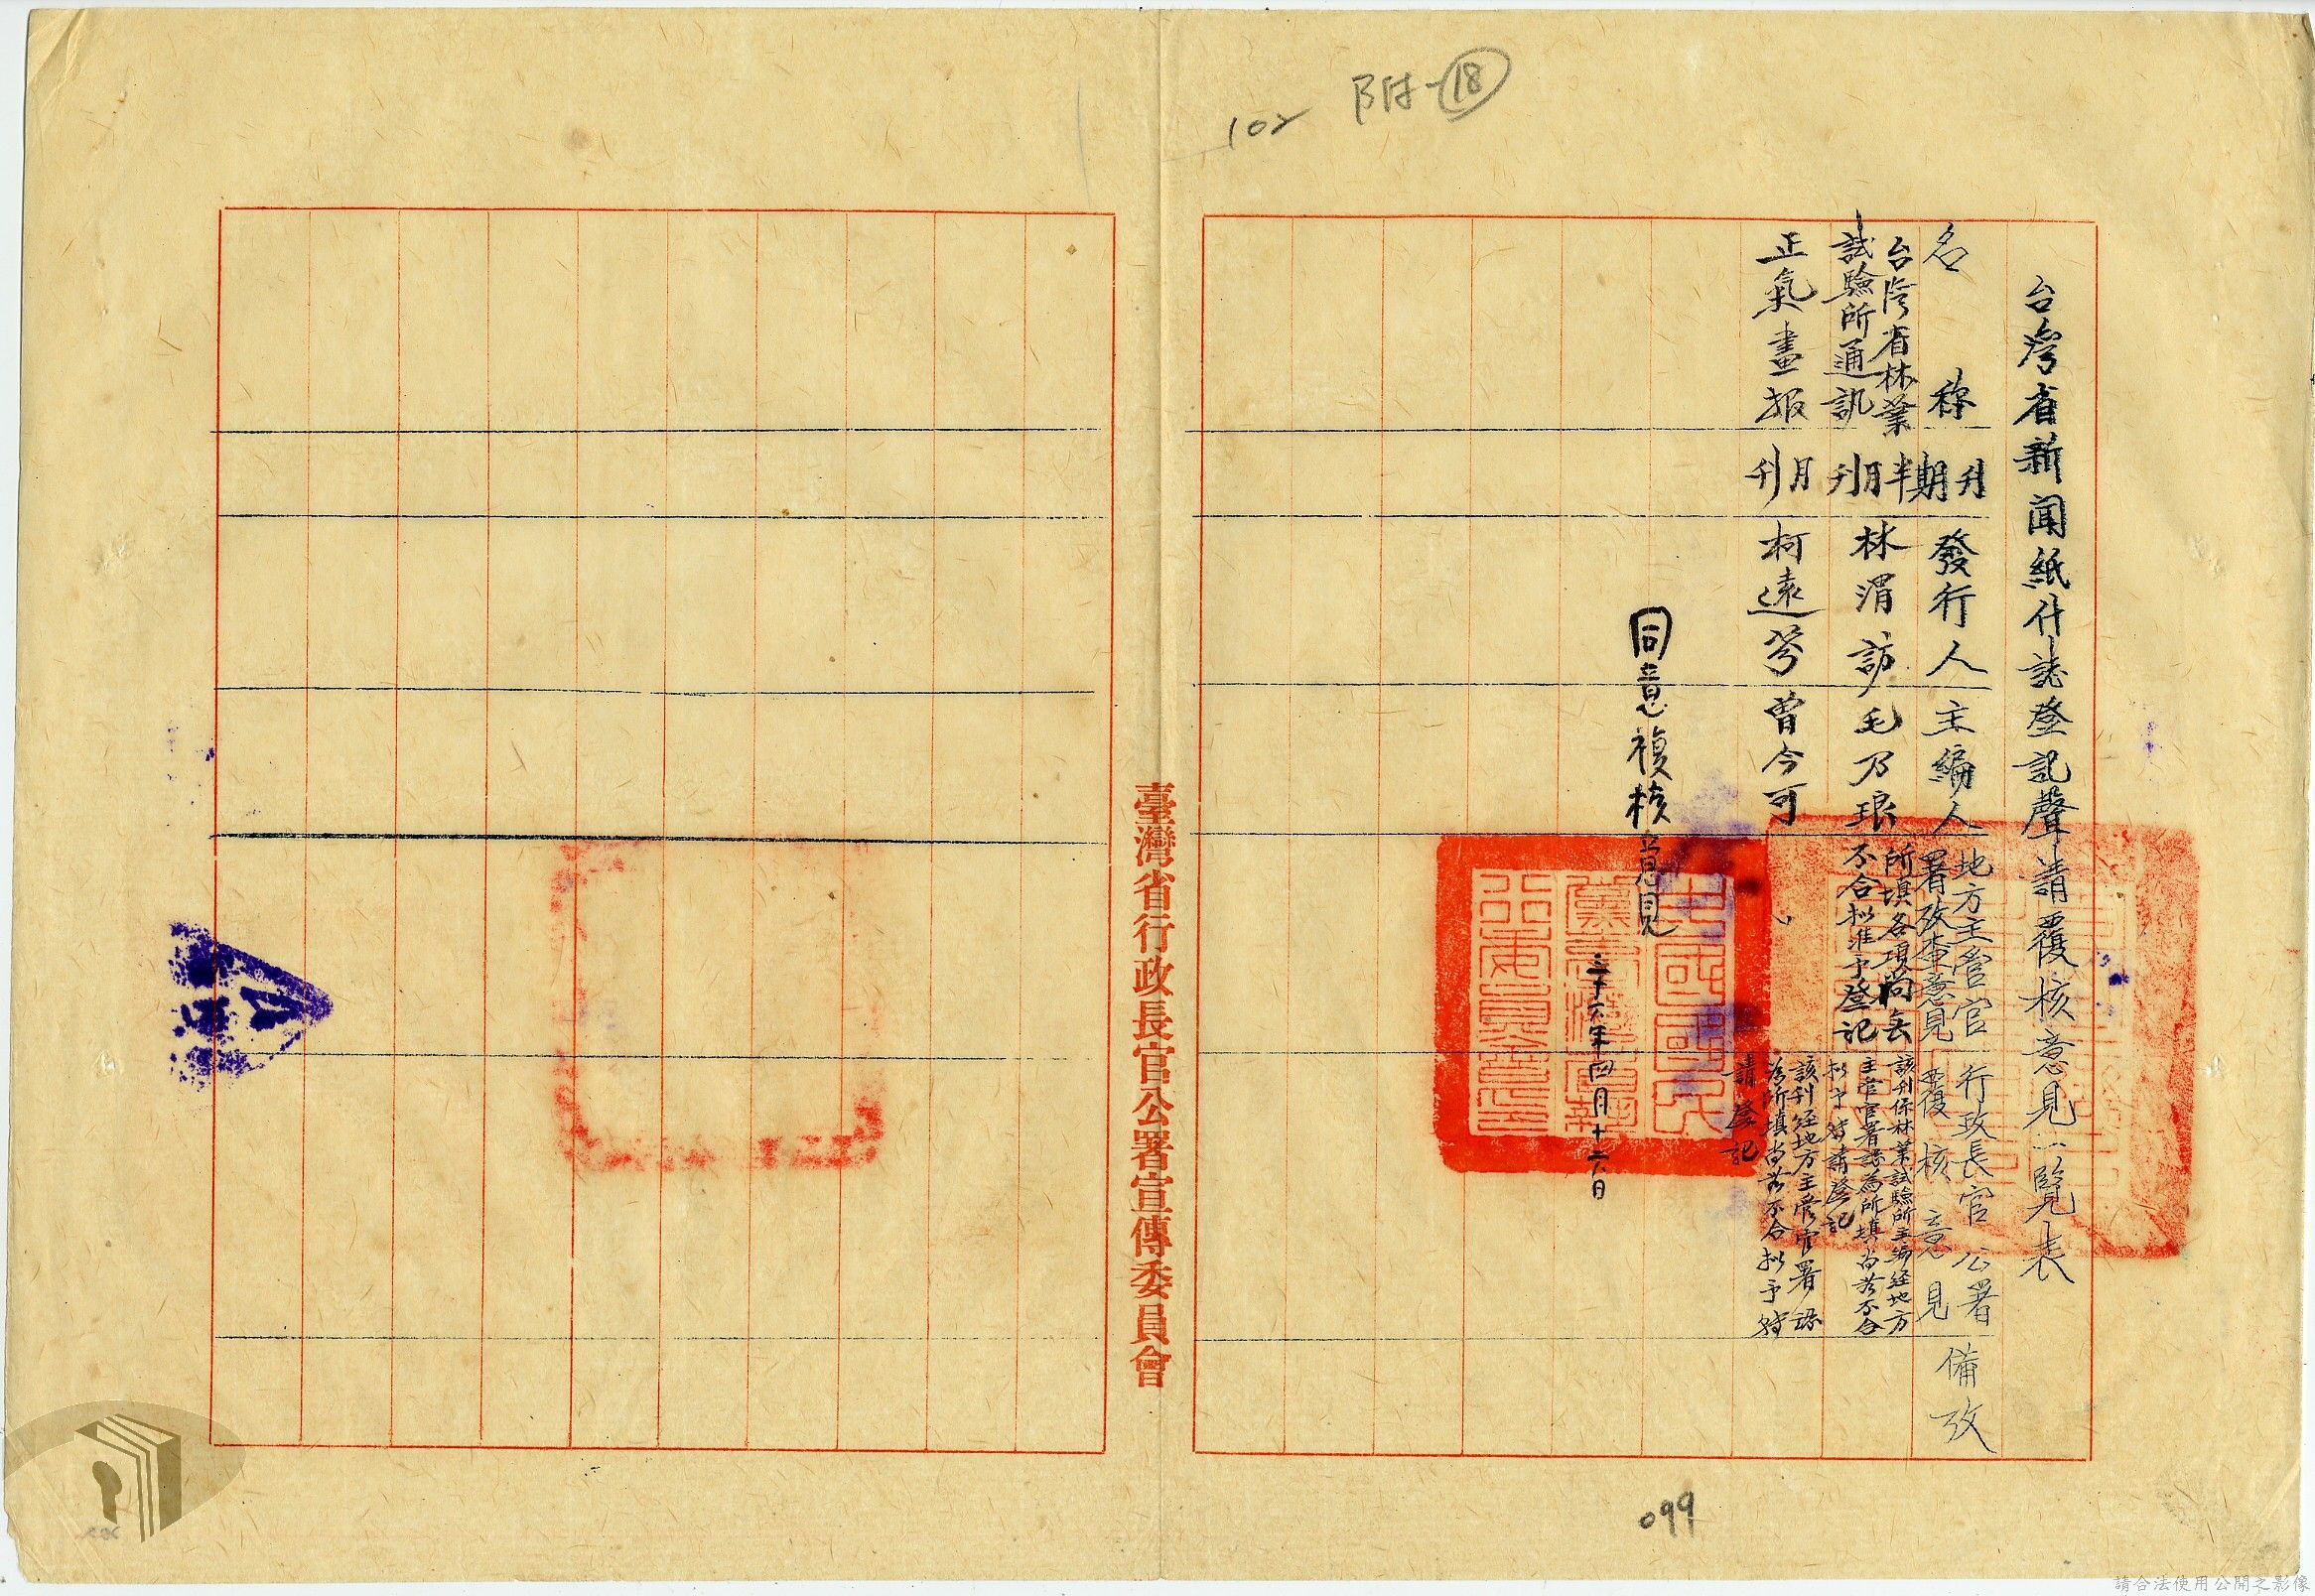 102
附-18
台灣省新聞紙什誌登記聲請覆核意見一覽表
名稱
刊期
發行人
主編人
地方主管官署攷查意見
行政長官公署覆核意見
備攷
台湾省林業
試驗所通訊
半月刊
林渭訪
毛乃琅
所填各項尚無
不合拟准予登記
該刊係林業試驗所主編経地方
主管官署認為所填尚無不合
拟予轉請登記
正氣畫报
月刊
柯遠芬
曾今可
〃
該刊経地方主管官署認
為所填尚無不合拟予轉
請登記
同意複核意見
三十六年四月十二日
臺灣省行政長官公署宣傳委員會
099
請合法使用公開之影像